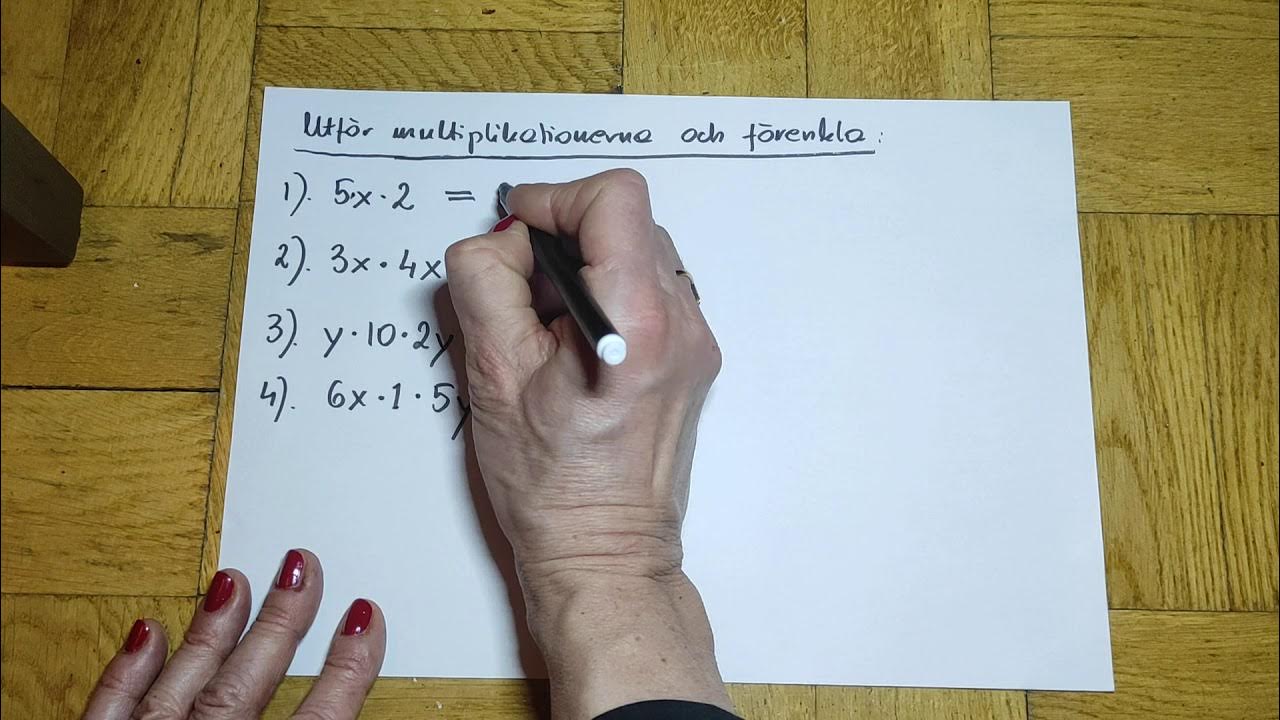 Utför multiplikationerna och förenkla:
1). 5·x · 2 =
2). 3x · 4x
3). y · 10 · 2y
4). 6x · 1 · 5y